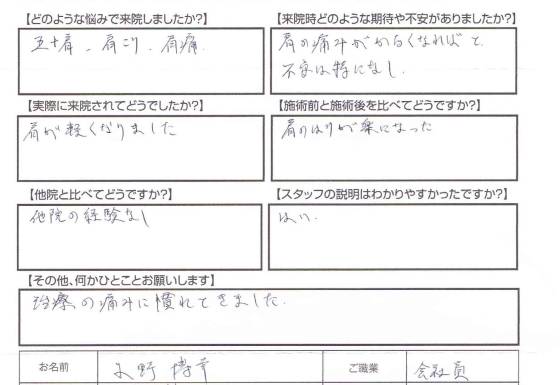 【どのような悩みで来院しましたか?】
五十肩、肩こり、肩痛
【来院時どのような期待や不安がありましたか?】
肩の痛みがかるくなればと
不安は特になし.
【実際に来院されてどうでしたか?】
肩が軽くなりました
【施術前と施術後を比べてどうですか?】
肩のはりが楽になった
【他院と比べてどうですか?】
他院の経験なし
【スタッフの説明はわかりやすかったですか?】
はい.
【その他、何かひとことお願いします】
治療の痛みに慣れてきました.
お名前
野 博幸
ご職業
会社員